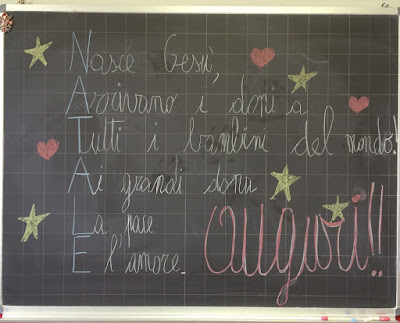 Nasce Gesù,
Arrivano i doni a
Tutti i bambini del mondo!
Ai grandi dona
La pace
E l'amore.
Auguri!!